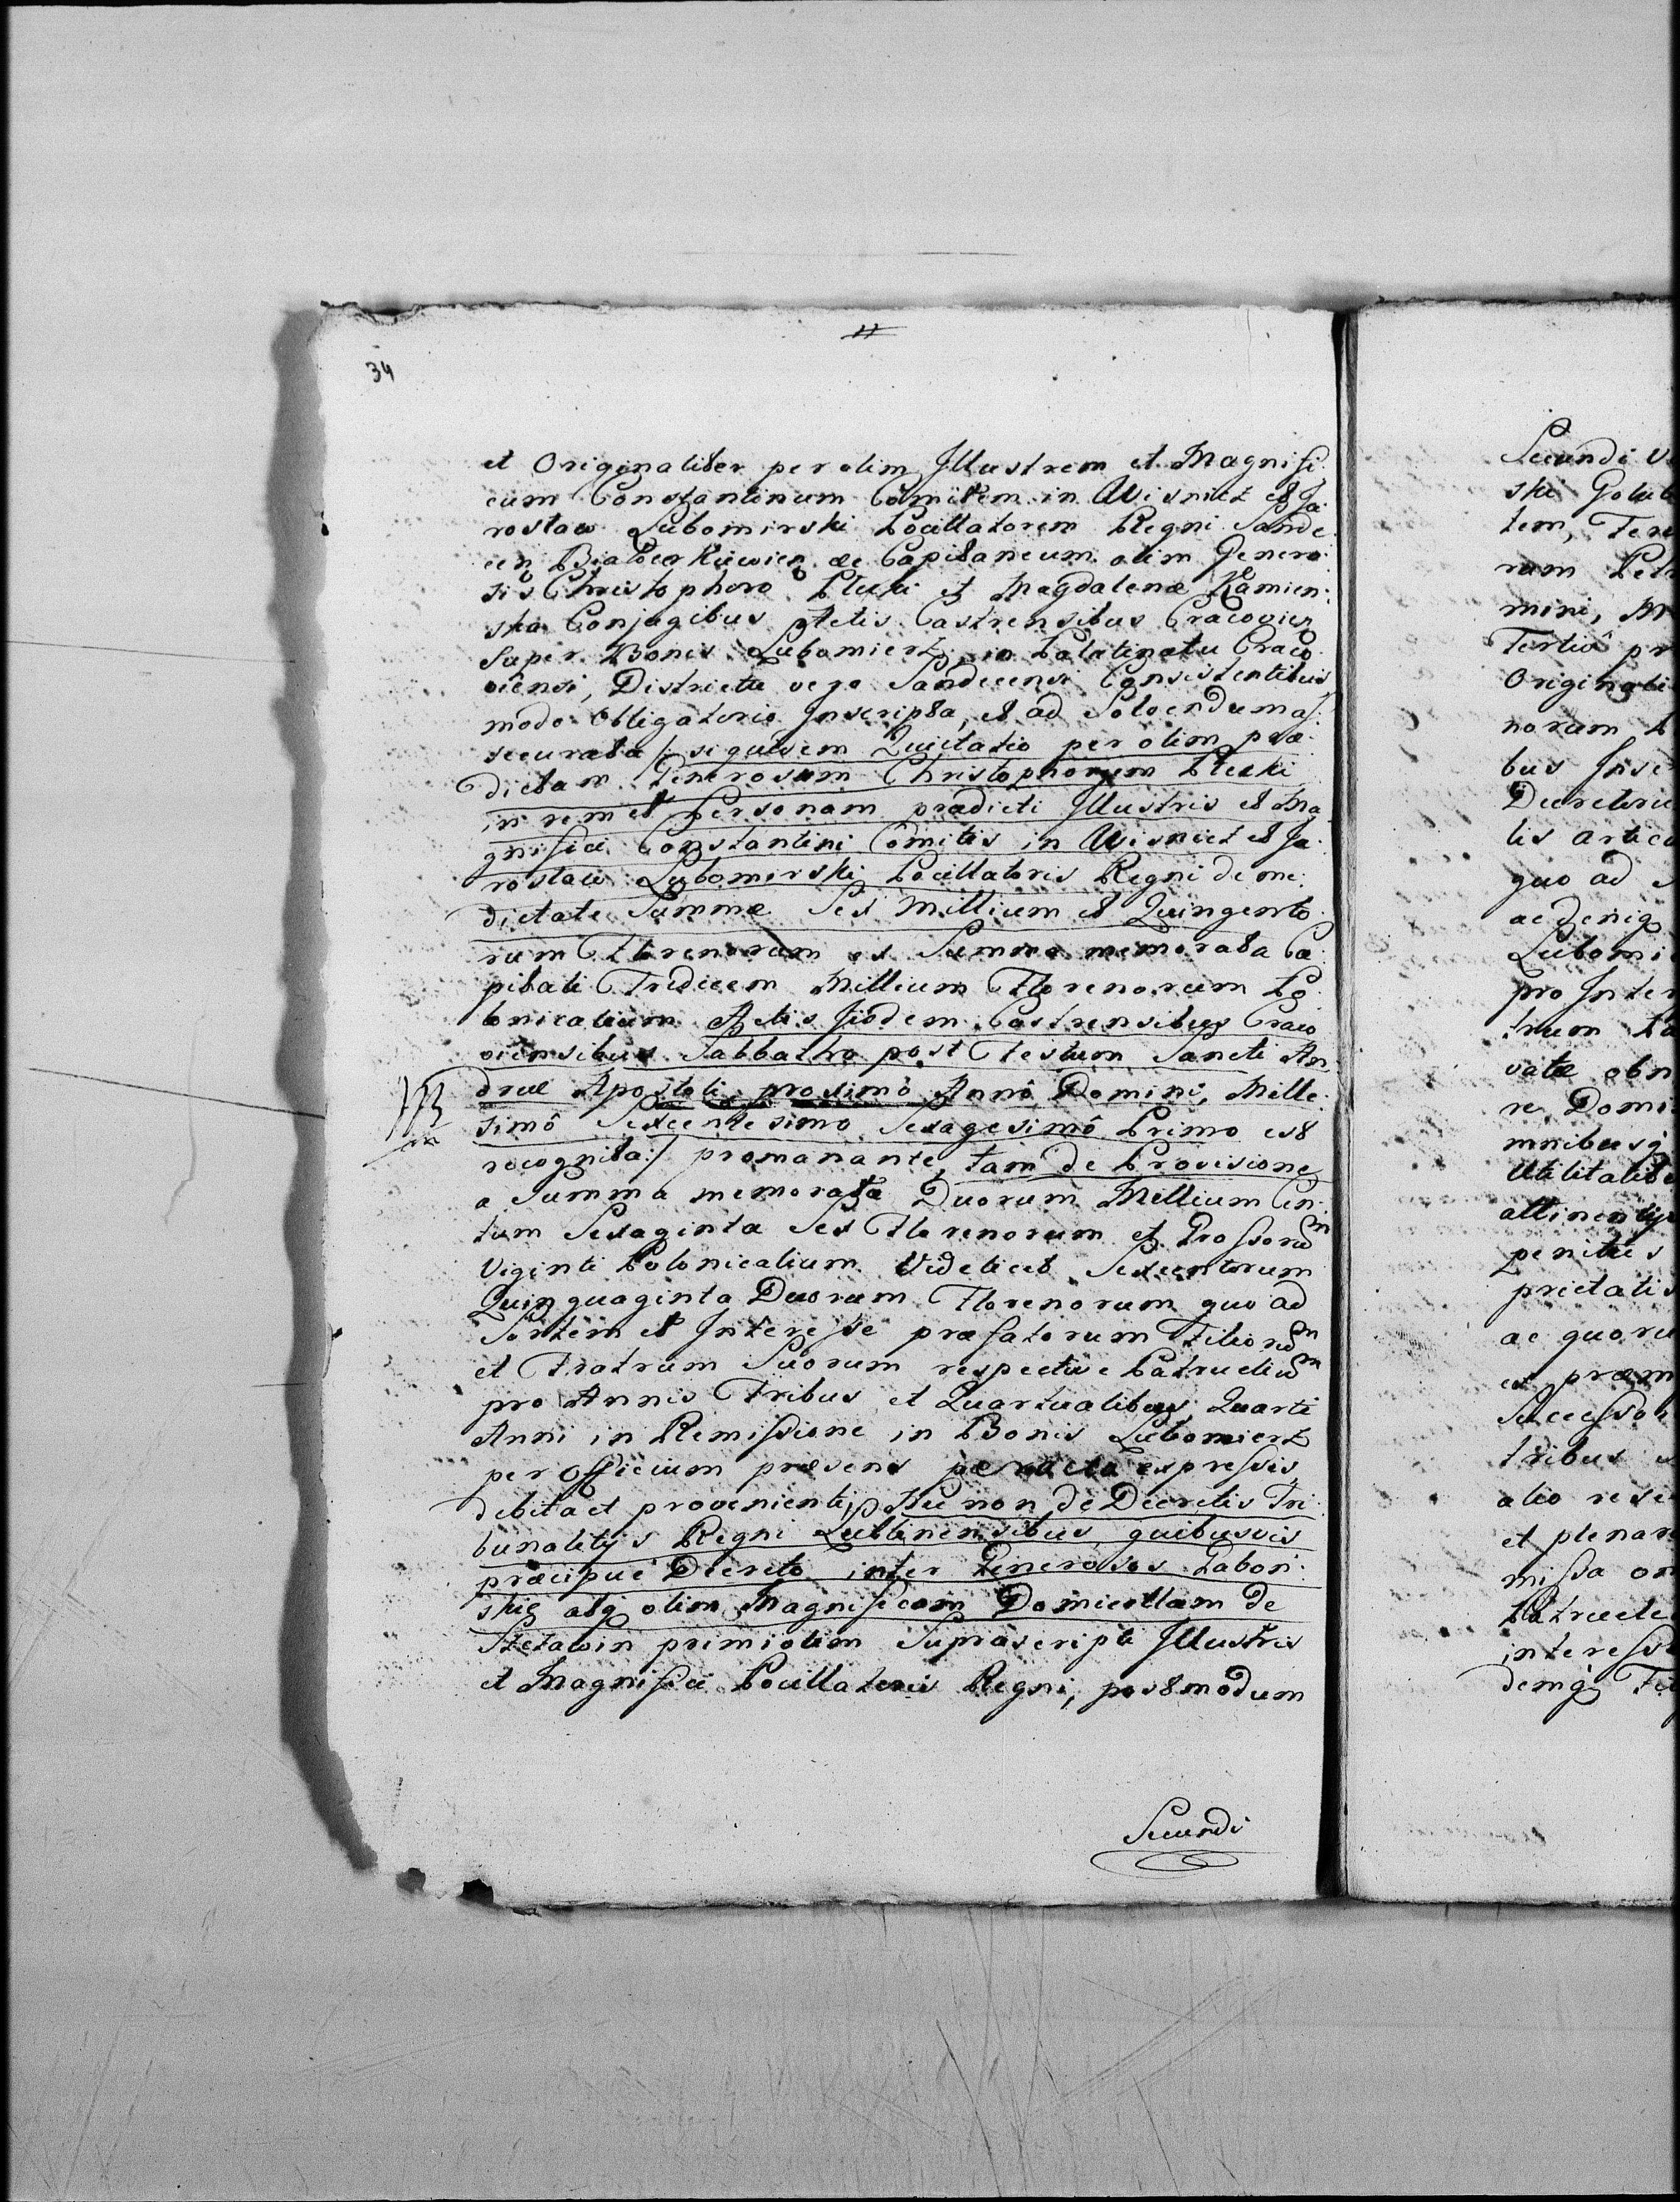 11
34
et Originaliter per olim Illustrem et Magnifi
cum Constantinum Comitem in Wisnicz et Ja
roslaw Lubomirski Pocillatorem Regni Sande
cen Bialocerkiewien ac Capitaneum olim Genero
sis Christophoro Plecki et Magdalena Kamien:
ska Conjugibus Actis Castrensibus Cracovien
Super Bonis Lubomierz, in Palatinatu Craco
viensi, Districtu vero Sandecensi Consistentibus
modo Obligatorio Inscripta, et ad Solvendum as:
securata /: siquidem Quietatio per olim præ
dictam Generosum Christophorum Plecki
in rem et Personam prædicti Illustris et Ma
gnifici Constantini Comitis in Wisnicz et Ja
roslaw Lubomirski Pocillatoris Regni de me:
dietate Summæ Sex Millium et Quingento
rum Florenorum ex Summa memorata Ca
pitali Tredecem Millium Florenorum Po
lonicalium Actis Iisdem Castrensibus Craco
viensibus Sabbatho post Festum Sancti An
dreæ Apostoli proximô Annô Domini, Mille
simô Sexcentesimo Sexagesimô Primo est
recognita:/ promanante, tam de Provisione
a Summa memorata Duorum Millium Cen
tum Sexaginta Sex Florenorum et Grossorum
Viginti Polonicalium Videlicet Sexcentorum
Quinquaginta Duorum Florenorum quo ad
Sortem et Interesse præfatorum Filiorum
et Fratrum Suorum respective Patruelium
pro Annis Tribus et Quartualibus Quarti
Anni in Remissione in Bonis Lubomierz
per Officium præsens peracta expressis
debita et provenienti, Nec non de Decretis Tri
bunalitijs Regni Lublinensibus, quibusvis
præcipuè Decreto inter Generosos Labon:
skie atq olim Magnificam Domicellam de
Sczawin primi olim Suprascripti Illustris
et Magnifici Pocillatoris Regni, postmodum
Secundi
Secundi
ski
tem,
rum
mini,
Tertiô
Origin
norum
bus
Decret
lis
quo ad
ac deniq
Lubomi
pro Inter
trum
vatæ
re, Domi
mnibusq
Utilitatib
attinentij
penitus
prietatis
ac quoru
et præm
Successo
tribus
alio
et plenar
missa
Patruele
interess
demq